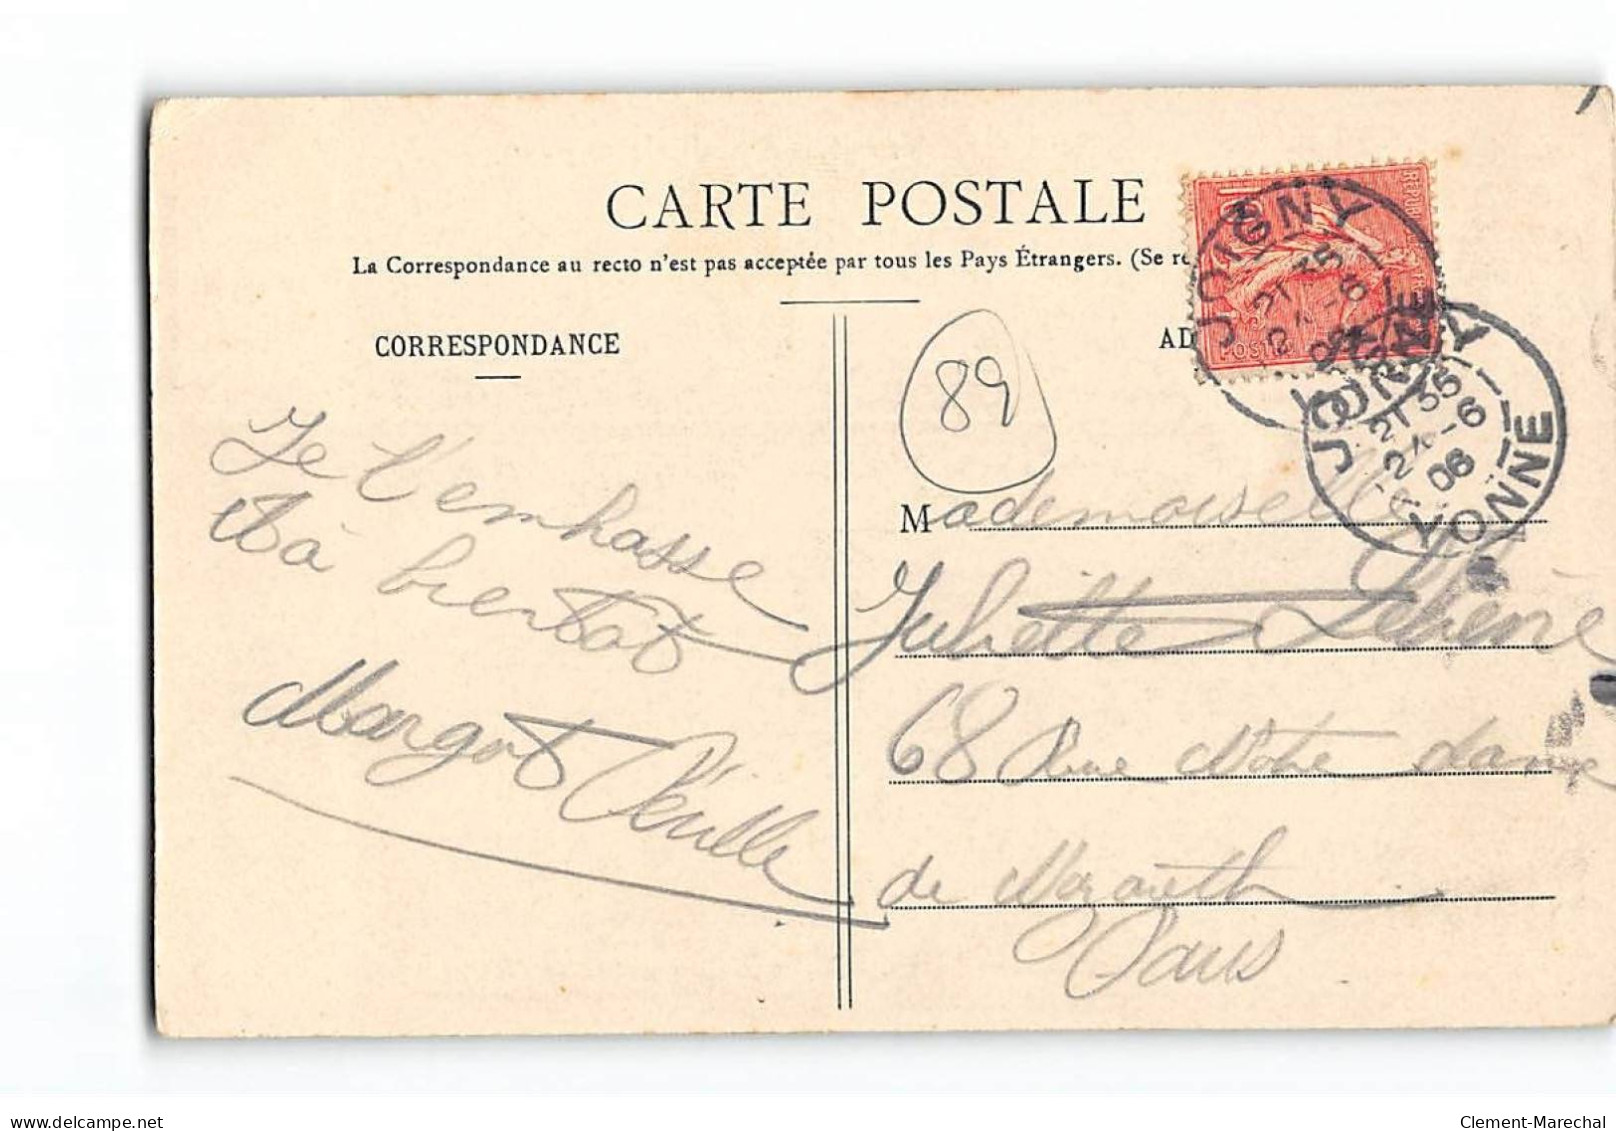 CARTE POSTALE
La Correspondance au recto n'est pas acceptée par tous les Pays Étrangers. (Se re
CORRESPONDANCE
AD
89
REPUB
POSTES
JOIGNY
21 35
24 - 6
YONNE
JOIGNY
21 35
24 - 6
06
YONNE
Je t'embrasse
à bientot
Margot
Mademoiselle
Juliette
68 Rue Notre dame
de Nazareth
Paris
delcampe.net
Clement-Marechal